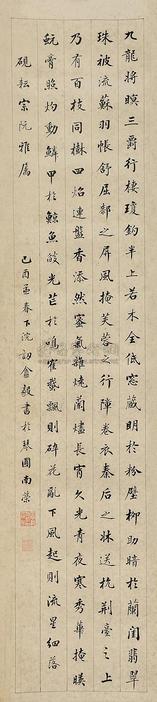 九龍將暝三爵行棲瓊鈎半上若木全低窓藏明於粉壁柳助暗於蘭閨翡翠
珠被流蘇羽帳舒屈郄之屏風掩芙蓉之行障卷衣秦后之牀送枕荆臺之上
乃有百枝同樹四焰連盤香添然蜜氣雜燒蘭燼長宵久光青夜寒秀華掩暎
蚖膏照灼動鱗甲於鯨魚燄光芒於鳴崔蛾飄則碎花亂下風起則流星細落
硯耘宗阮雅屬
己酉孟春下浣訒會毅書於琴園南榮